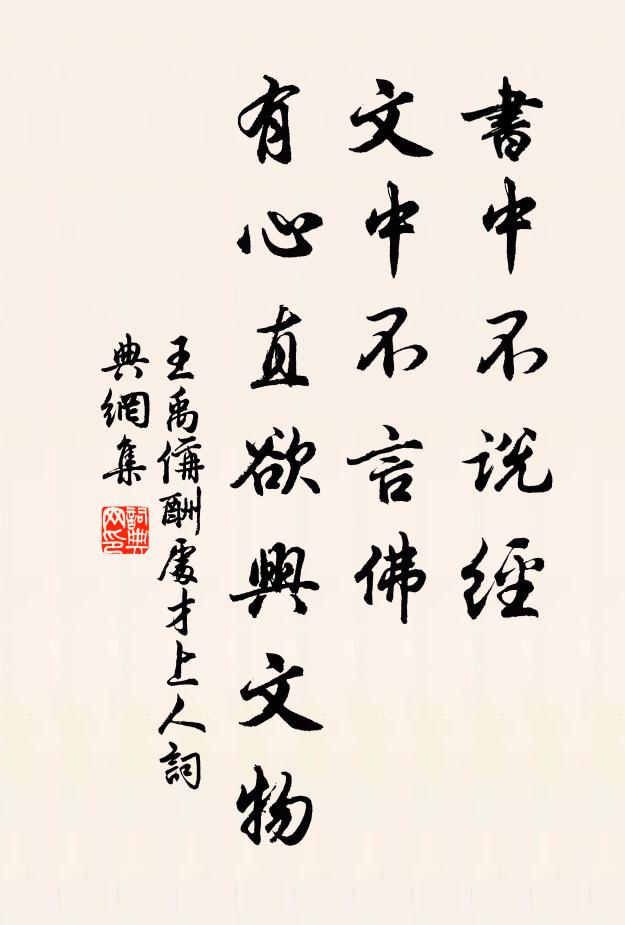 書中不說經
文中不言佛
有心直欲興文物
王禹偁酬處才上人詞
典網集
詞典
网印